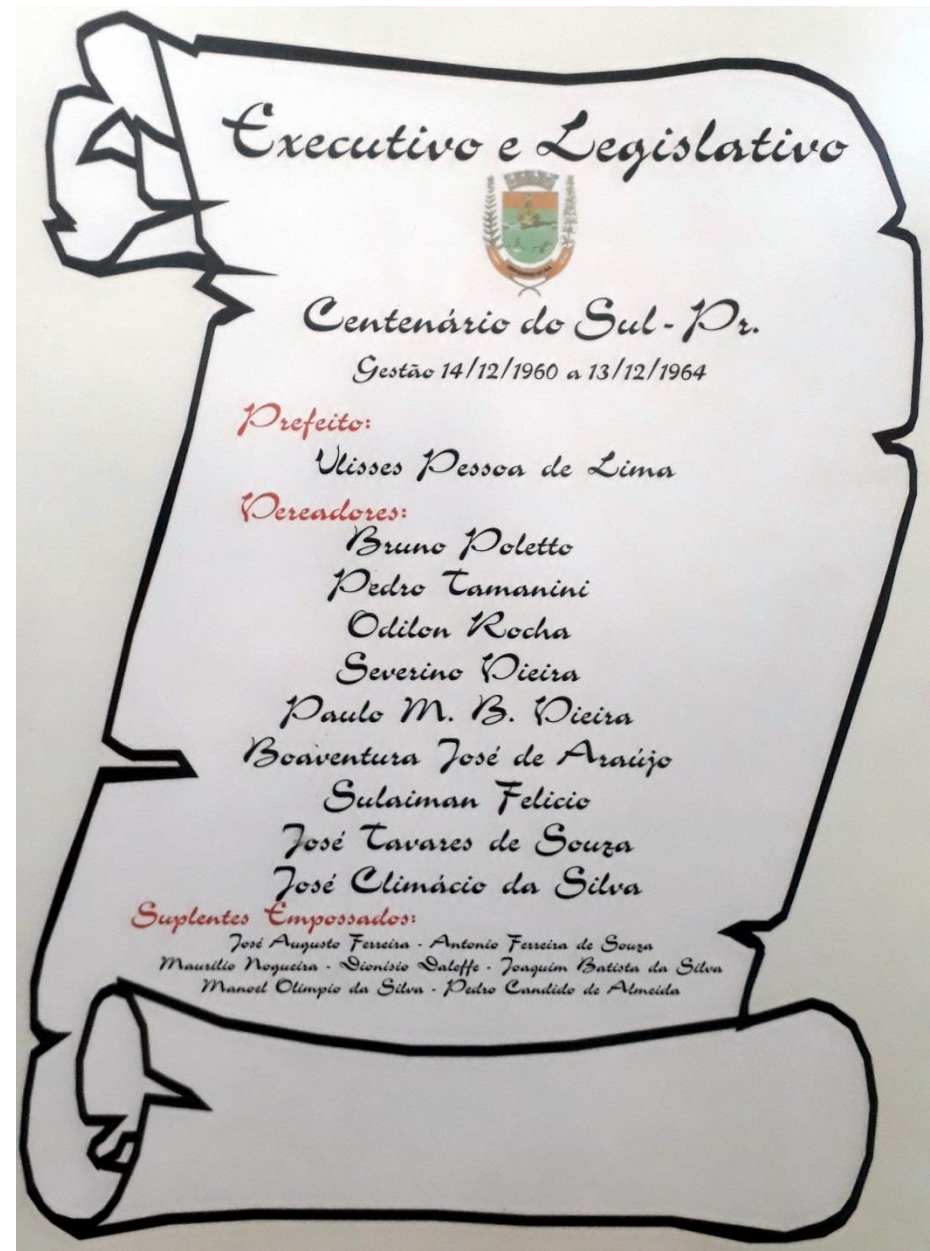 Executivo e Legislativo
Centenário do Sul - Pr.
Gestão 14/12/1960 a 13/12/1964
Prefeito:
Ulisses Pessoa de Lima
Vereadores:
Bruno Poletto
Pedro Tamanini
Odilon Rocha
Severino Vieira
Paulo M. B. Vieira
Boaventura José de Araújo
Sulaiman Felicio
José Tavares de Souza
José Climácio da Silva
Suplentes Empossados:
José Augusto Ferreira - Antonio Ferreira de Souza
Maurilio Nogueira - Dionisio Daleffe - Joaquim Batista da Silva
Manoel Olimpio da Silva - Pedro Candido de Almeida